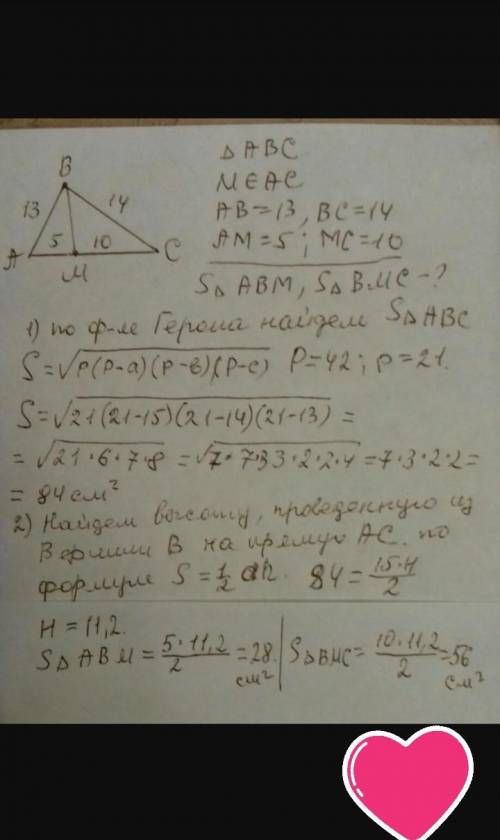 B
13
14
5
10
A
M
C
△ ABC
M∈AC
AB=13, BC=14
AM=5; MC=10
S△ABM, S△BMC-?
1) по ф-ле Герона найдем S△ABC
S=√P(P-a)(P-в)(P-c) P=42; p=21.
S=√21(21-15)(21-14)(21-13) =
= √21·6·7·8 = √7·7·3·3·2·2·4 = 7·3·2·2=
= 84 см²
2) Найдем высоту, проведенную из
Вершины B на прямую AC. по
формуле S=1/2 ah. 84 = 15·H/2
H=11,2.
S△ABM = 5·11,2/2 =28 см² | S△BMC= 10·11,2/2 =56 см²